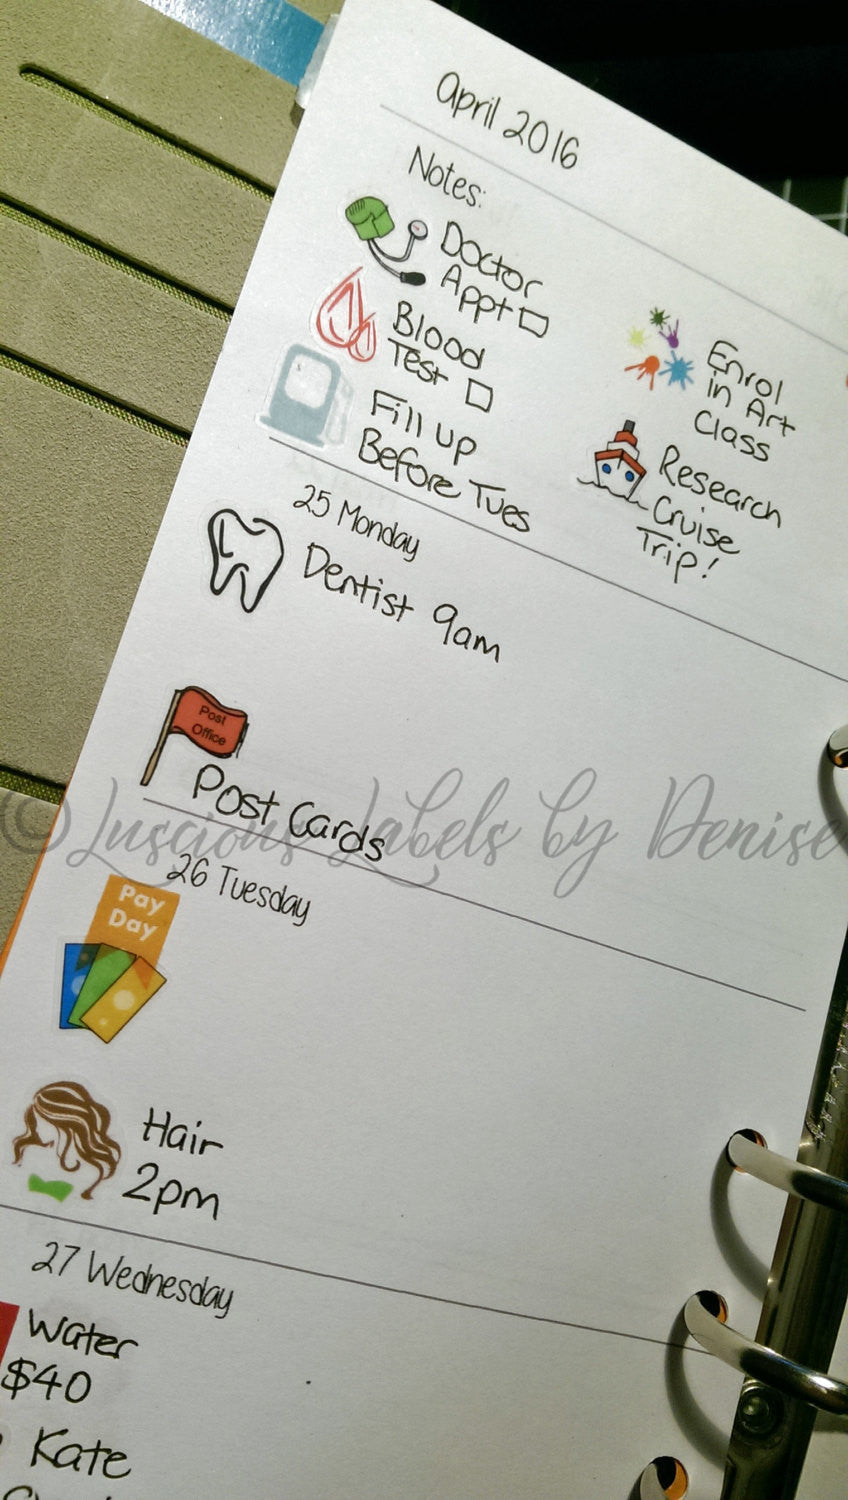 April 2016
Notes:
Doctor
Appt
Blood
Test
Fill up
Before Tues
Enrol
in Art
Class
Research
Cruise
Trip!
25 Monday
Dentist 9am
Post
Office
Post Cards
©Luscious Labels by Denise
26 Tuesday
Pay
Day
Hair
2pm
27 Wednesday
Water
$40
Kate